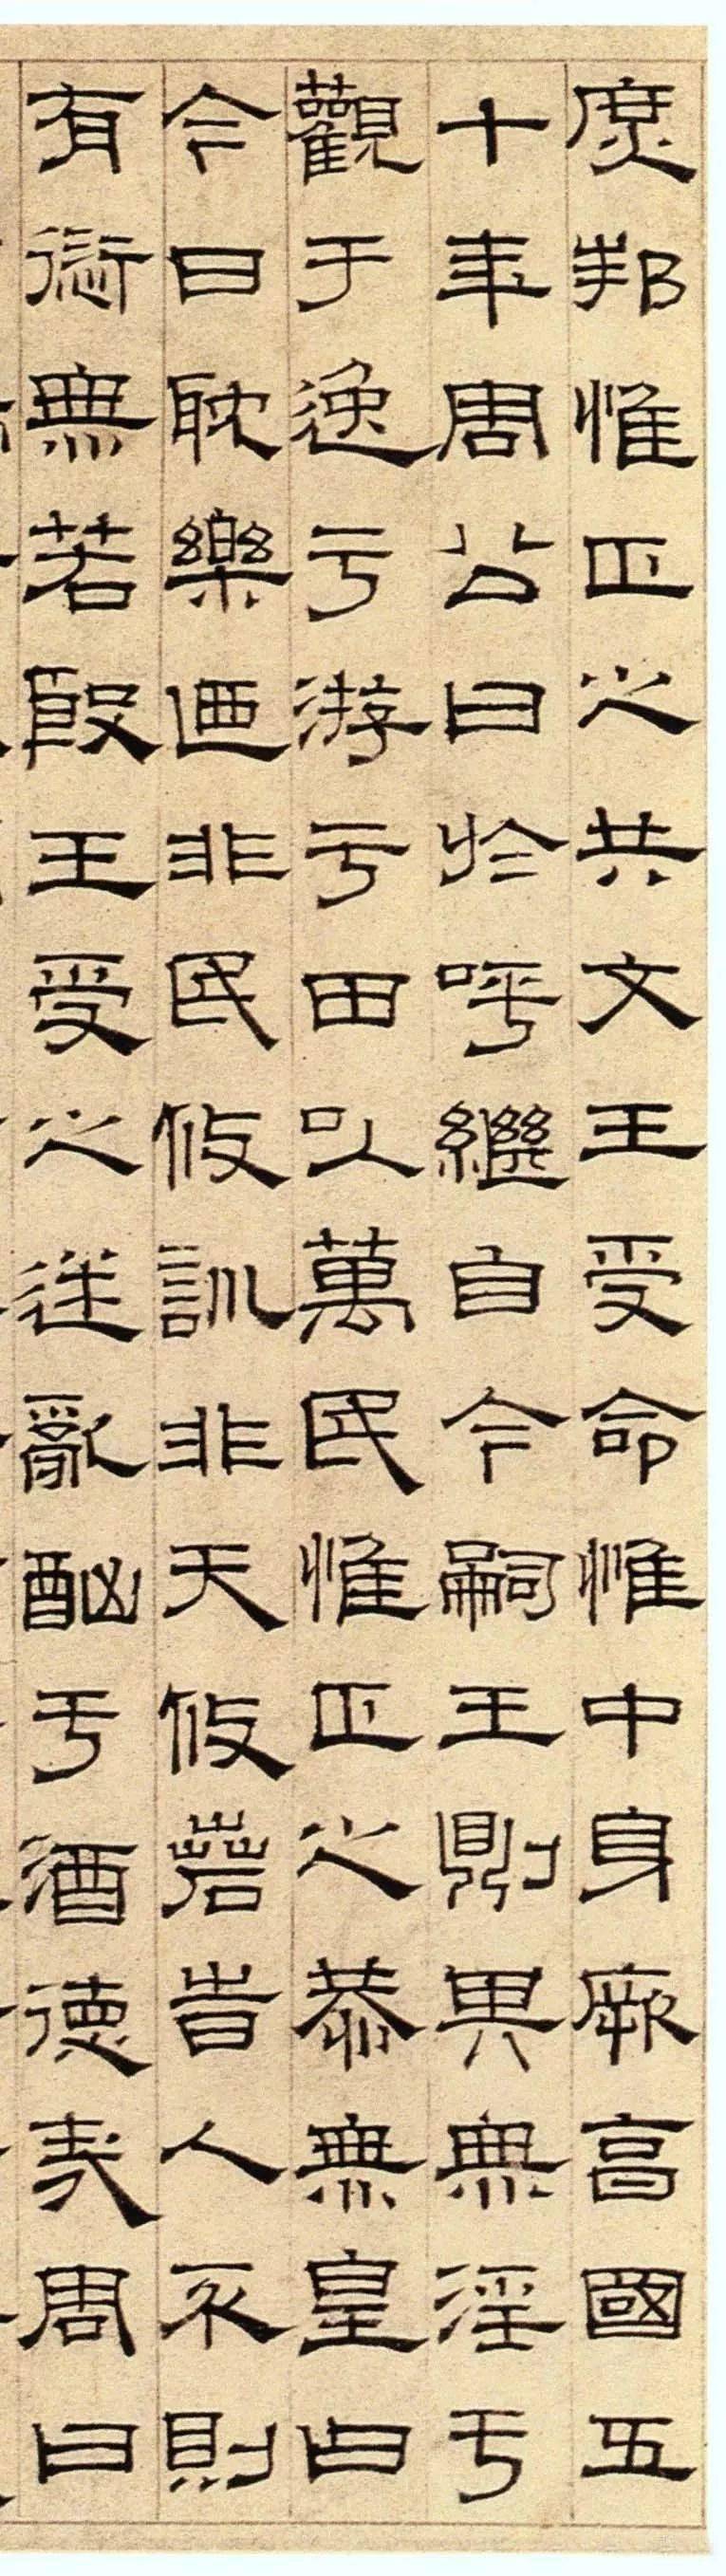 庶邦惟正之共文王受命惟中身厥亯國五
十年周公曰於呼繼自今嗣王則其無淫于
觀于逸于游于田以萬民惟正之恭無皇曰
今日耽樂迺非民攸訓非天攸若旹人不則
有愆無若殷王受之迷亂酗于酒德哉周曰